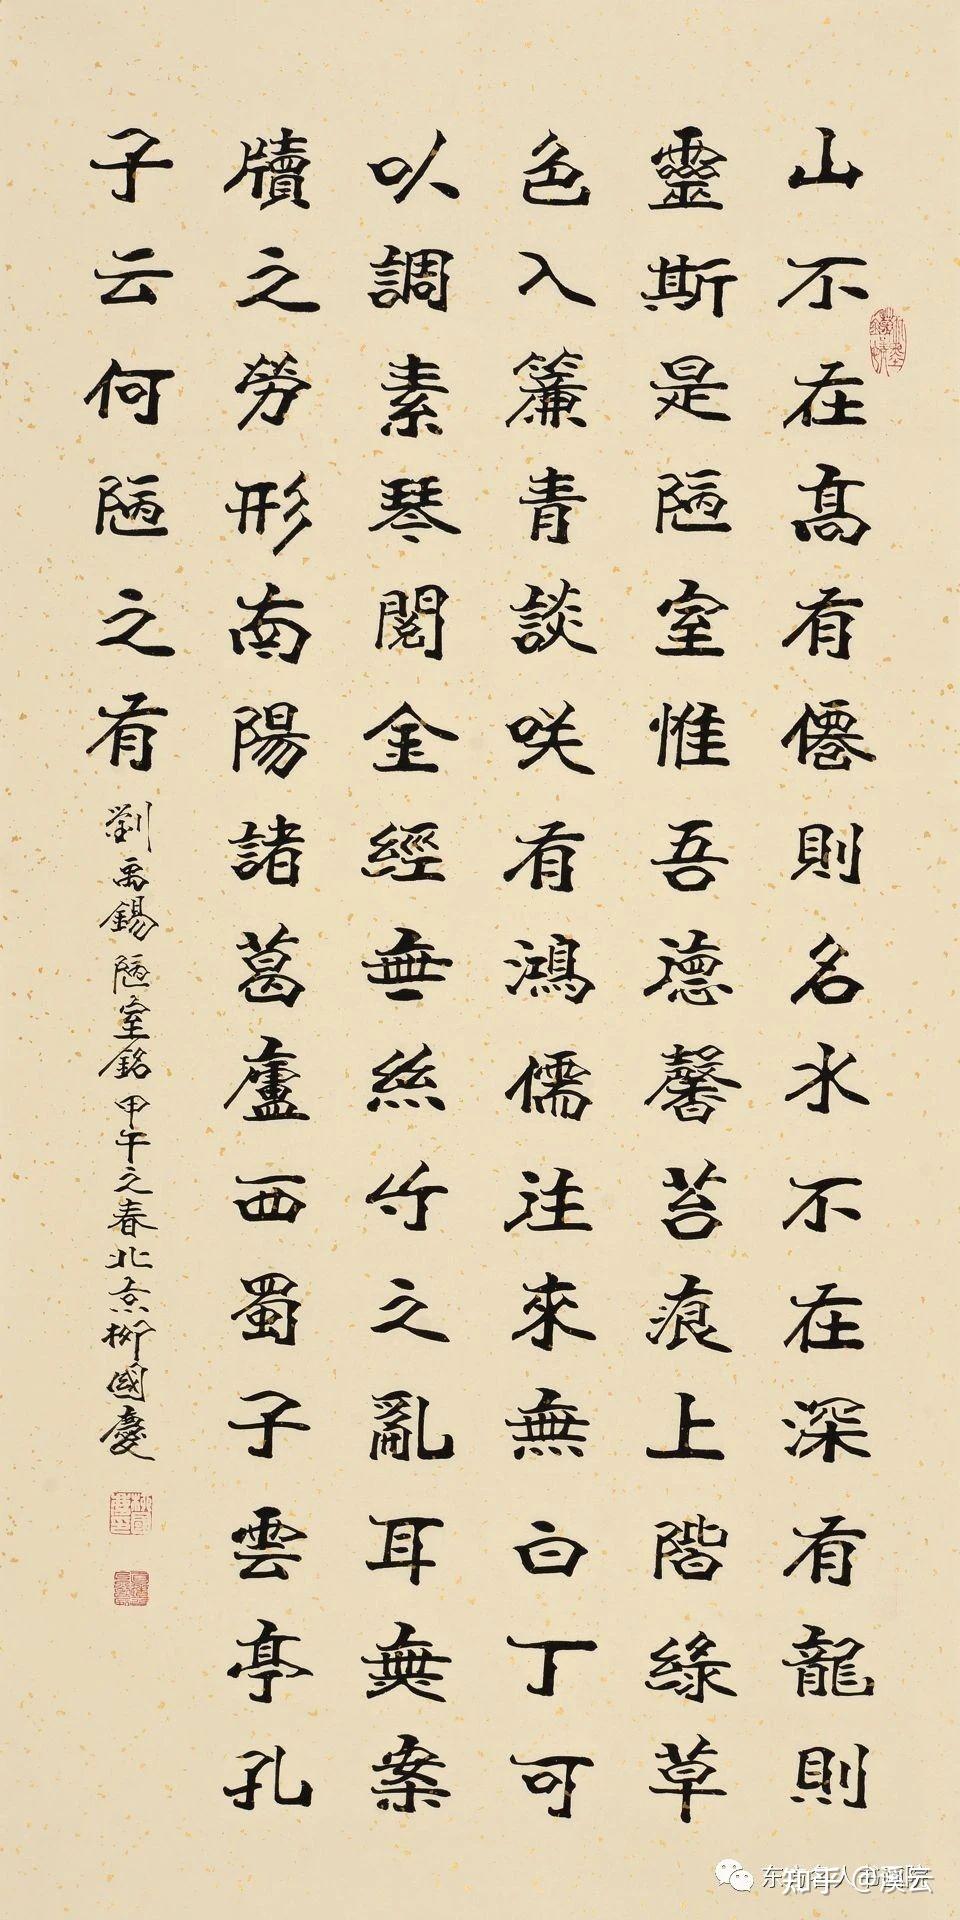 山不在高有僊則名水不在深有龍則
靈斯是陋室惟吾德馨苔痕上階綠草
色入簾青談咲有鴻儒往來無白丁可
以調素琴閱金經無絲竹之亂耳無案
牘之勞形南陽諸葛廬西蜀子雲亭孔
子云何陋之有
劉禹錫陋室銘甲午之春北京柳國慶
知乎 @溪云